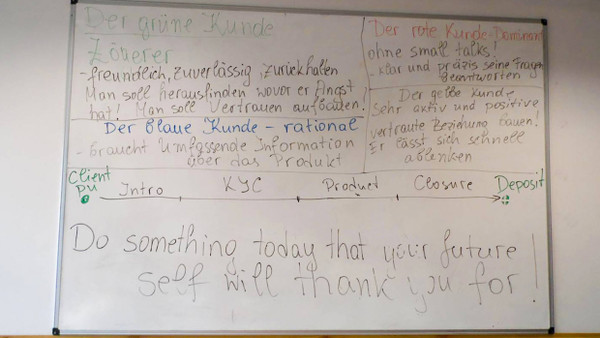 Der grüne Kunde
Zögerer
- freundlich, zuverlässig, zurückhalten
Man soll herausfinden wovor er Angst
hat! Man soll Vertrauen aufbauen!
Der blaue Kunde - rational
- braucht umfassende Information
über das Produkt
Der rote Kunde-Dominant
ohne small talks!
- klar und präzis seine Fragen
beantworten
Der gelbe Kunde
sehr aktiv und positive
vertraute Beziehung bauen!
Er lässt sich schnell
ablenken
Client
pu
Intro KYC Product Closure Deposit
Do something today that your future
self will thank you for!